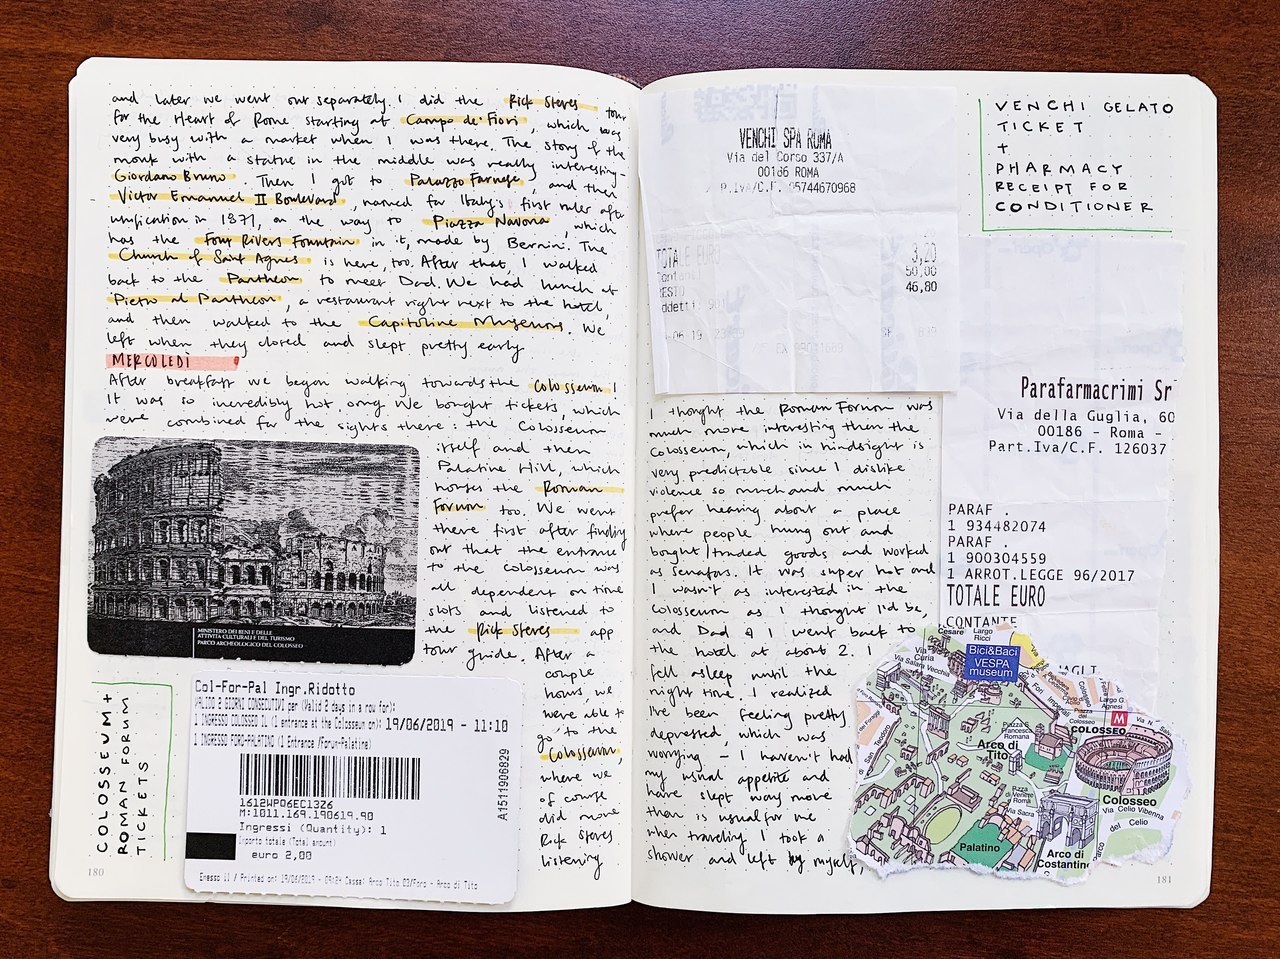 and later we went out separately. I did the Rick Steves tour
for the Heart of Rome starting at Campo de' Fiori, which was
very busy with a market when I was there. The story of the
monk with a statue in the middle was really interesting-
Giordano Bruno. Then I got to Palazzo Farnese, and then
Victor Emanuel II Boulevard, named for Italy's first ruler after
unification in 1871, on the way to Piazza Navona, which
has the Four Rivers Fountain in it, made by Bernini. The
Church of Saint Agnes is here, too. After that, I walked
back to the Pantheon to meet Dad. We had lunch at
Pietro al Pantheon, a restaurant right next to the hotel,
and then walked to the Capitoline Museums. We
left when they closed and slept pretty early
MERCOLEDÌ
After breakfast we began walking towards the Colosseum!
It was so incredibly hot omg. We bought tickets, which
were combined for the sights there: the Colosseum
itself and then
Palatine Hill, which
houses the Roman
Forum too. We went
there first after finding
out that the entrance
to the Colosseum was
all dependent on time
slots and listened to
the Rick Steves app
tour guide. After a
couple
hours, we
were able to
go to the
Colosseum,
where we
of course
did more
Rick Steves
listening
MINISTERO DEI BENI E DELLE
ATTIVITÀ CULTURALI E DEL TURISMO
PARCO ARCHEOLOGICO DEL COLOSSEO
COLOSSEUM +
ROMAN FORUM
TICKETS
Col-For-Pal Ingr.Ridotto
VALIDO 2 GIORNI CONSECUTIVI per (Valid 2 days in a row for):
1 INGRESSO COLOSSEO IL (1 entrance at the Colosseum on): 19/06/2019 - 11:10
1 INGRESSO FORO-PALATINO (1 Entrance /Forum-Palatine)
1612WP06EC13Z6
M:1011.169.190619.90
Ingressi (Quantity): 1
Importo totale (Total amount)
euro 2,00
Emesso il / Printed on: 19/06/2019 - 09:24 Cassa: Arco Tito 03/Foro - Arco di Tito
A1511906829
180
VENCHI SPA ROMA
Via del Corso 337/A
00186 ROMA
P.IVA/C.F. 05744670968
TOTALE EURO 3,20
Contanti 50,00
RESTO 46,80
VENCHI GELATO
TICKET
+
PHARMACY
RECEIPT FOR
CONDITIONER
Parafarmacrimi Sr
Via della Guglia, 60
00186 - Roma -
Part.Iva/C.F. 126037
PARAF .
1 934482074
PARAF .
1 900304559
1 ARROT.LEGGE 96/2017
TOTALE EURO
CONTANTE
I thought the Roman Forum was
much more interesting than the
Colosseum, which in hindsight is
very predictable since I dislike
violence so much and much
prefer hearing about a place
where people hung out and
bought/traded goods and worked
as senators. It was super hot and
I wasn't as interested in the
Colosseum as I thought I'd be,
and Dad & I went back to
the hotel at about 2. I
fell asleep until the
night time. I realized
I've been feeling pretty
depressed, which was
worrying - I haven't had
my usual appetite and
have slept way more
than is usual for me
when traveling. I took a
shower and left by myself,
Cesare
Largo
Ricci
Via
Curia
Bici&Baci
VESPA
museum
Largo G.
Agnesi
Piazza
del
Colosseo
M
COLOSSEO
Piazza S.
Francesca
Romana
Arco di
Tito
Via Sacra
Colosseo
Via Celio Vibenna
del Celio
Parco
Palatino
Arco di
Costantino
181